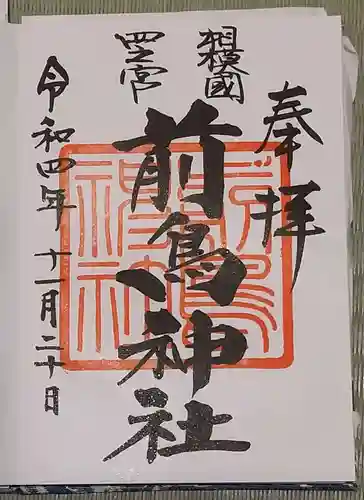 奉拝
相模國
四之宮
前鳥神社
令和四年十一月二十日
前鳥神社